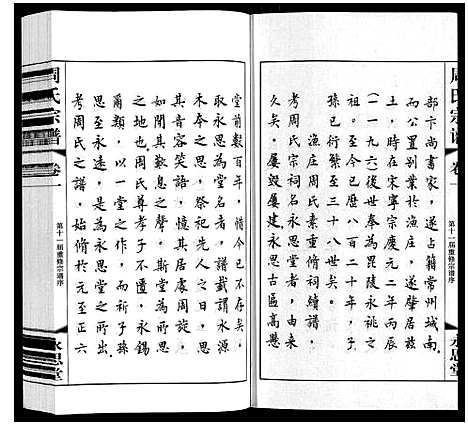 周氏宗谱
卷一
第十一届重修宗谱序
永思堂
部卞尚書家，遂占籍常州城南。
而公置别業於漁庄，遂肇居兹
土，時在宋寧宗慶元二年丙辰
（一一九六）後世奉為毘陵永祧之
祖。至今已曆八百二十年，子
孫已衍繁至三十八世矣。
漁庄周氏素重修祠續譜，
考周氏宗祠名永思堂者，由來
久矣。屢毁屢建，永思古匾高懸
堂前數百年，惜今已不存矣。
取永思為堂名者，譜載謂水源
木本之思，祭祀先人之日，思
其音容笑語，憶其居處周旋。
地也。周氏尊孝子不匱，永錫
爾類，以一堂之作，而祈子孫
思至永遠，是為永思堂之所出
考周氏之譜，始脩於元至正六
周氏宗谱
卷一
第十一届重修宗谱序
永思堂